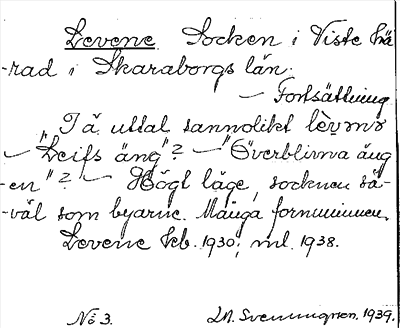 Levene Socken i Viste hä
-rad i Skaraborgs län.
— Fortsättning
I ä. uttal sannolikt
— "Leifs äng"? — "Överblivna äng
-en"? — Högt läge, socknen så-
-väl som byarne. Många fornminnen.
Levene kb. 1930, ml. 1938.
No 3.
Svenungsson. 1939.